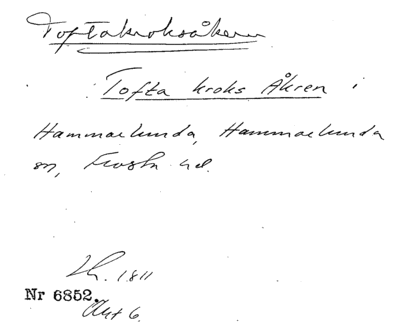 Toftakroksåkern
Tofta kroks Åkren i
Hammarlunda, Hammarlunda
sn, Frosta hd.
Lh. 1811
Nr 6852.
Akt 6.